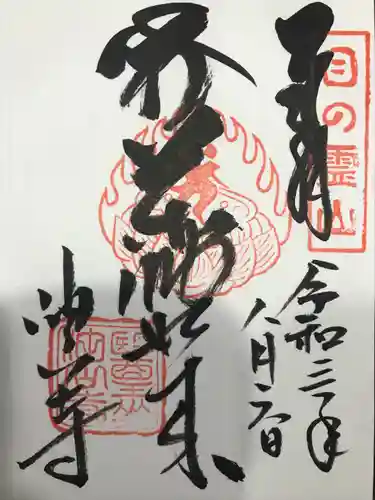 奉拝
目の霊山
令和三年
八月六日
薬師如来
油山寺